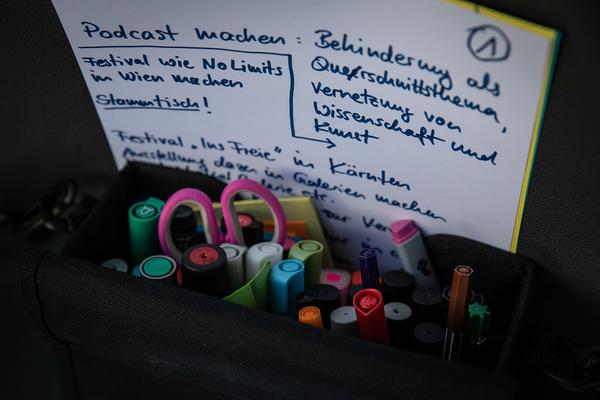 ①
Podcast machen:
Festival wie NoLimits
in Wien machen
Stammtisch!
Behinderung als
Querschnittsthema,
Vernetzung von
Wissenschaft und
Kunst
Festival „Ins Freie" in Kärnten
Ausstellung dazu in Galerien machen
etc.
zur